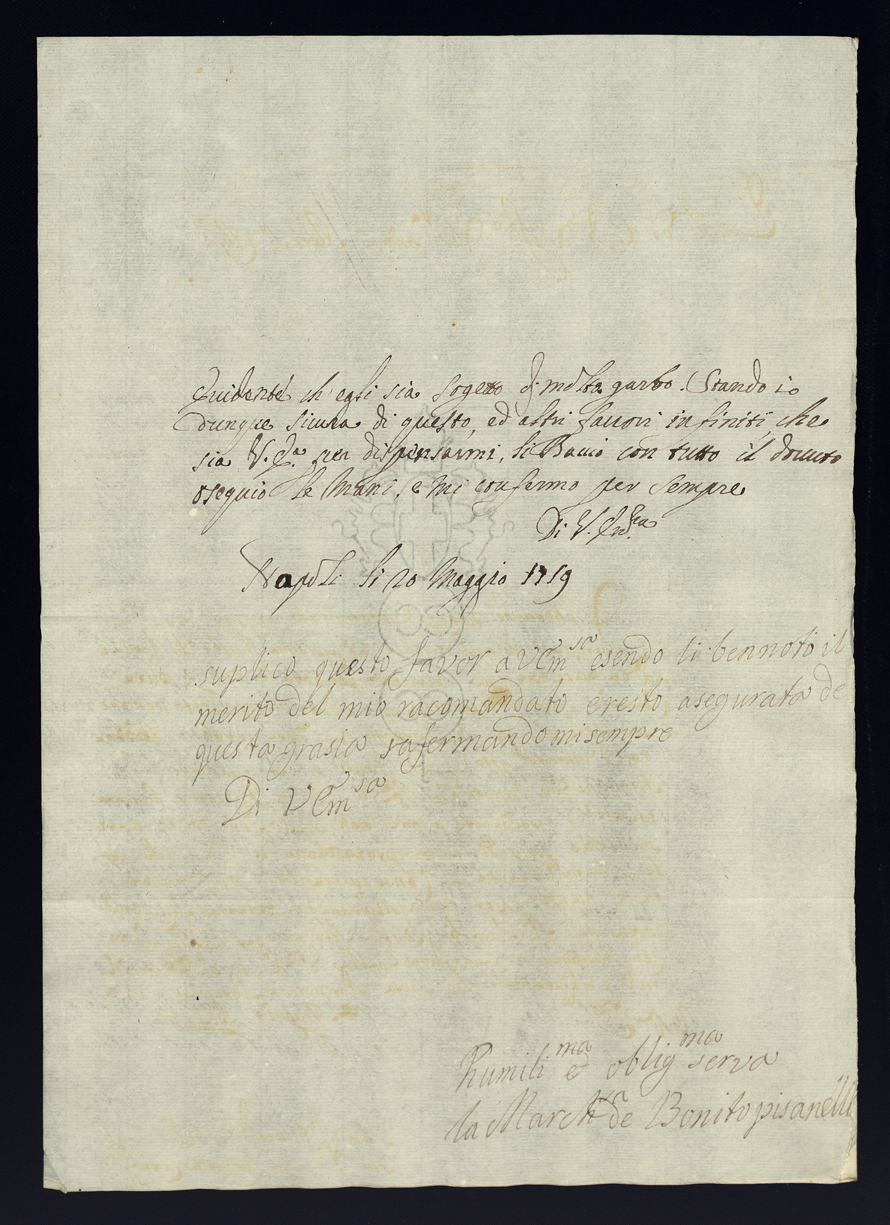 ch'egli sia sogetto di molto garbo. Stando io
dunque sicura di questo, ed altri favori infiniti, che
sia V. per dispensarmi, li Bacio con tutto il dovuto
osequio le Mani, e mi confermo per sempre
Di V.
Napoli li 20 Maggio 1719
suplico questo favor a VEm^sa esendo li ben noto il
merito del mio racomandato e resto asegurata de
questa grasia rafermandomi sempre
Di VEm^sa
humili^ma e oblig^ma serva
la March^sa de Bonito pisanelli